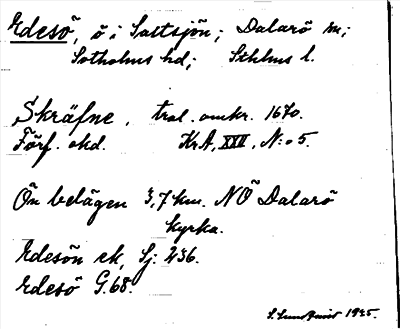 Edesö, ö i Saltsjön; Dalarö sn;
Sotholms hd; Sthlms l.
Skräfne, trol. omkr. 1670.
Förf. okd. KrA, XXII, N:o 5.
Ön belägen 3,7 km. NÖ Dalarö
kyrka.
Edesön ek, Sj. 236.
Edesö G.68.
S. Lundqvist 1925.